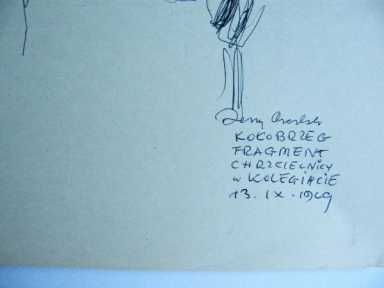 Jerzy
KOŁOBRZEG
FRAGMENT
CHRZCIELNICY
W KOLEGIACIE
13. IX. 1969